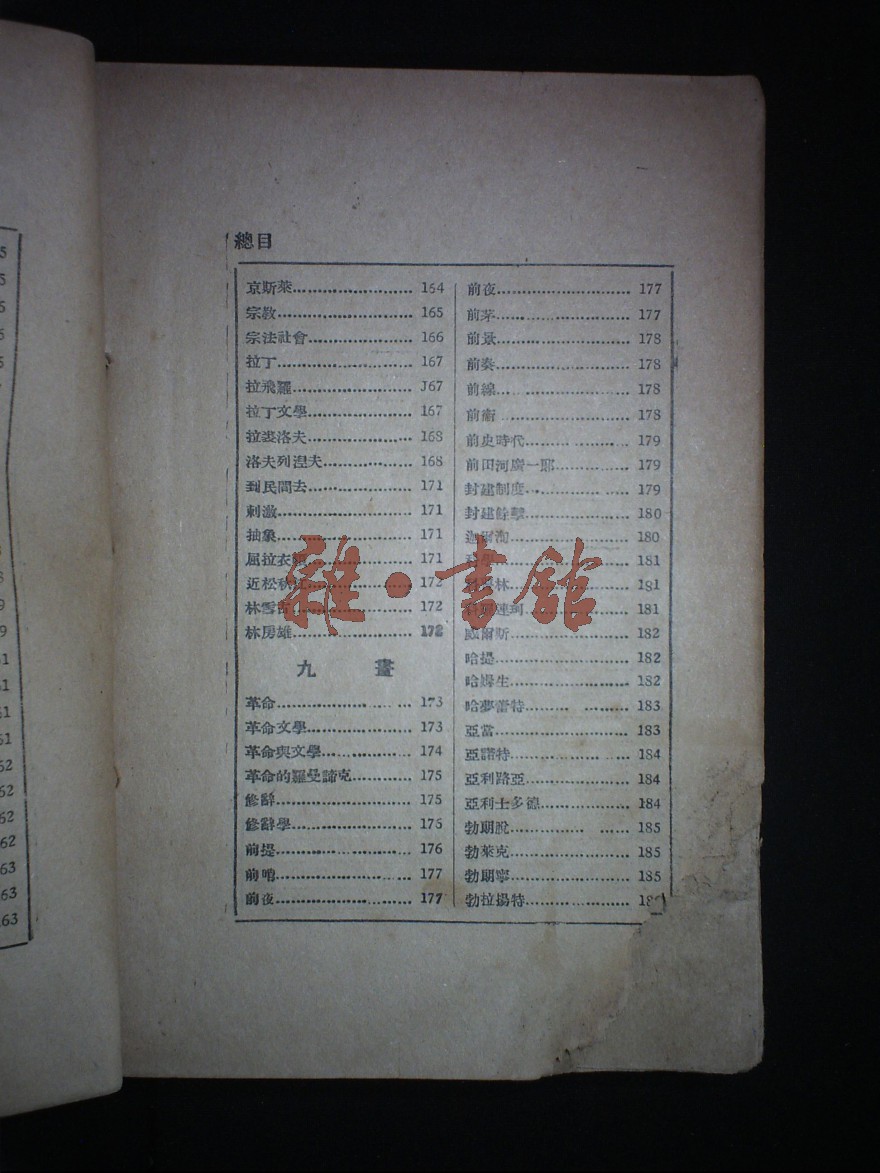 總目
京斯萊........................ 164
宗教........................ 165
宗法社會........................ 166
拉丁........................ 167
拉飛羅........................ J67
拉丁文學........................ 167
拉裟洛夫........................ 168
洛夫列湼夫........................ 168
到民間去........................ 171
刺激........................ 171
抽象........................ 171
屈拉衣 171
近松秋 172
林雪 172
林房雄........................ 172
九 畫
革命........................ 173
革命文學........................ 173
革命與文學........................ 174
革命的羅曼諦克............ 175
修辭........................ 175
修辭學........................ 176
前提........................ 176
前哨........................ 177
前夜........................ 177
前夜........................ 177
前茅........................ 177
前景........................ 178
前奏........................ 178
前線........................ 178
前衛........................ 178
前史時代........................ 179
前田河廣一郎............ 179
封建制度........................ 179
封建餘孽........................ 180
180
181
林 181
181
威爾斯........................ 182
哈提........................ 182
哈姆生........................ 182
哈夢雷特........................ 183
亞當........................ 183
亞諾特........................ 184
亞利路亞........................ 184
亞利士多德........................ 184
勃朗脫........................ 185
勃萊克........................ 185
勃朗寧........................ 185
勃拉揚特........................
雜·書館